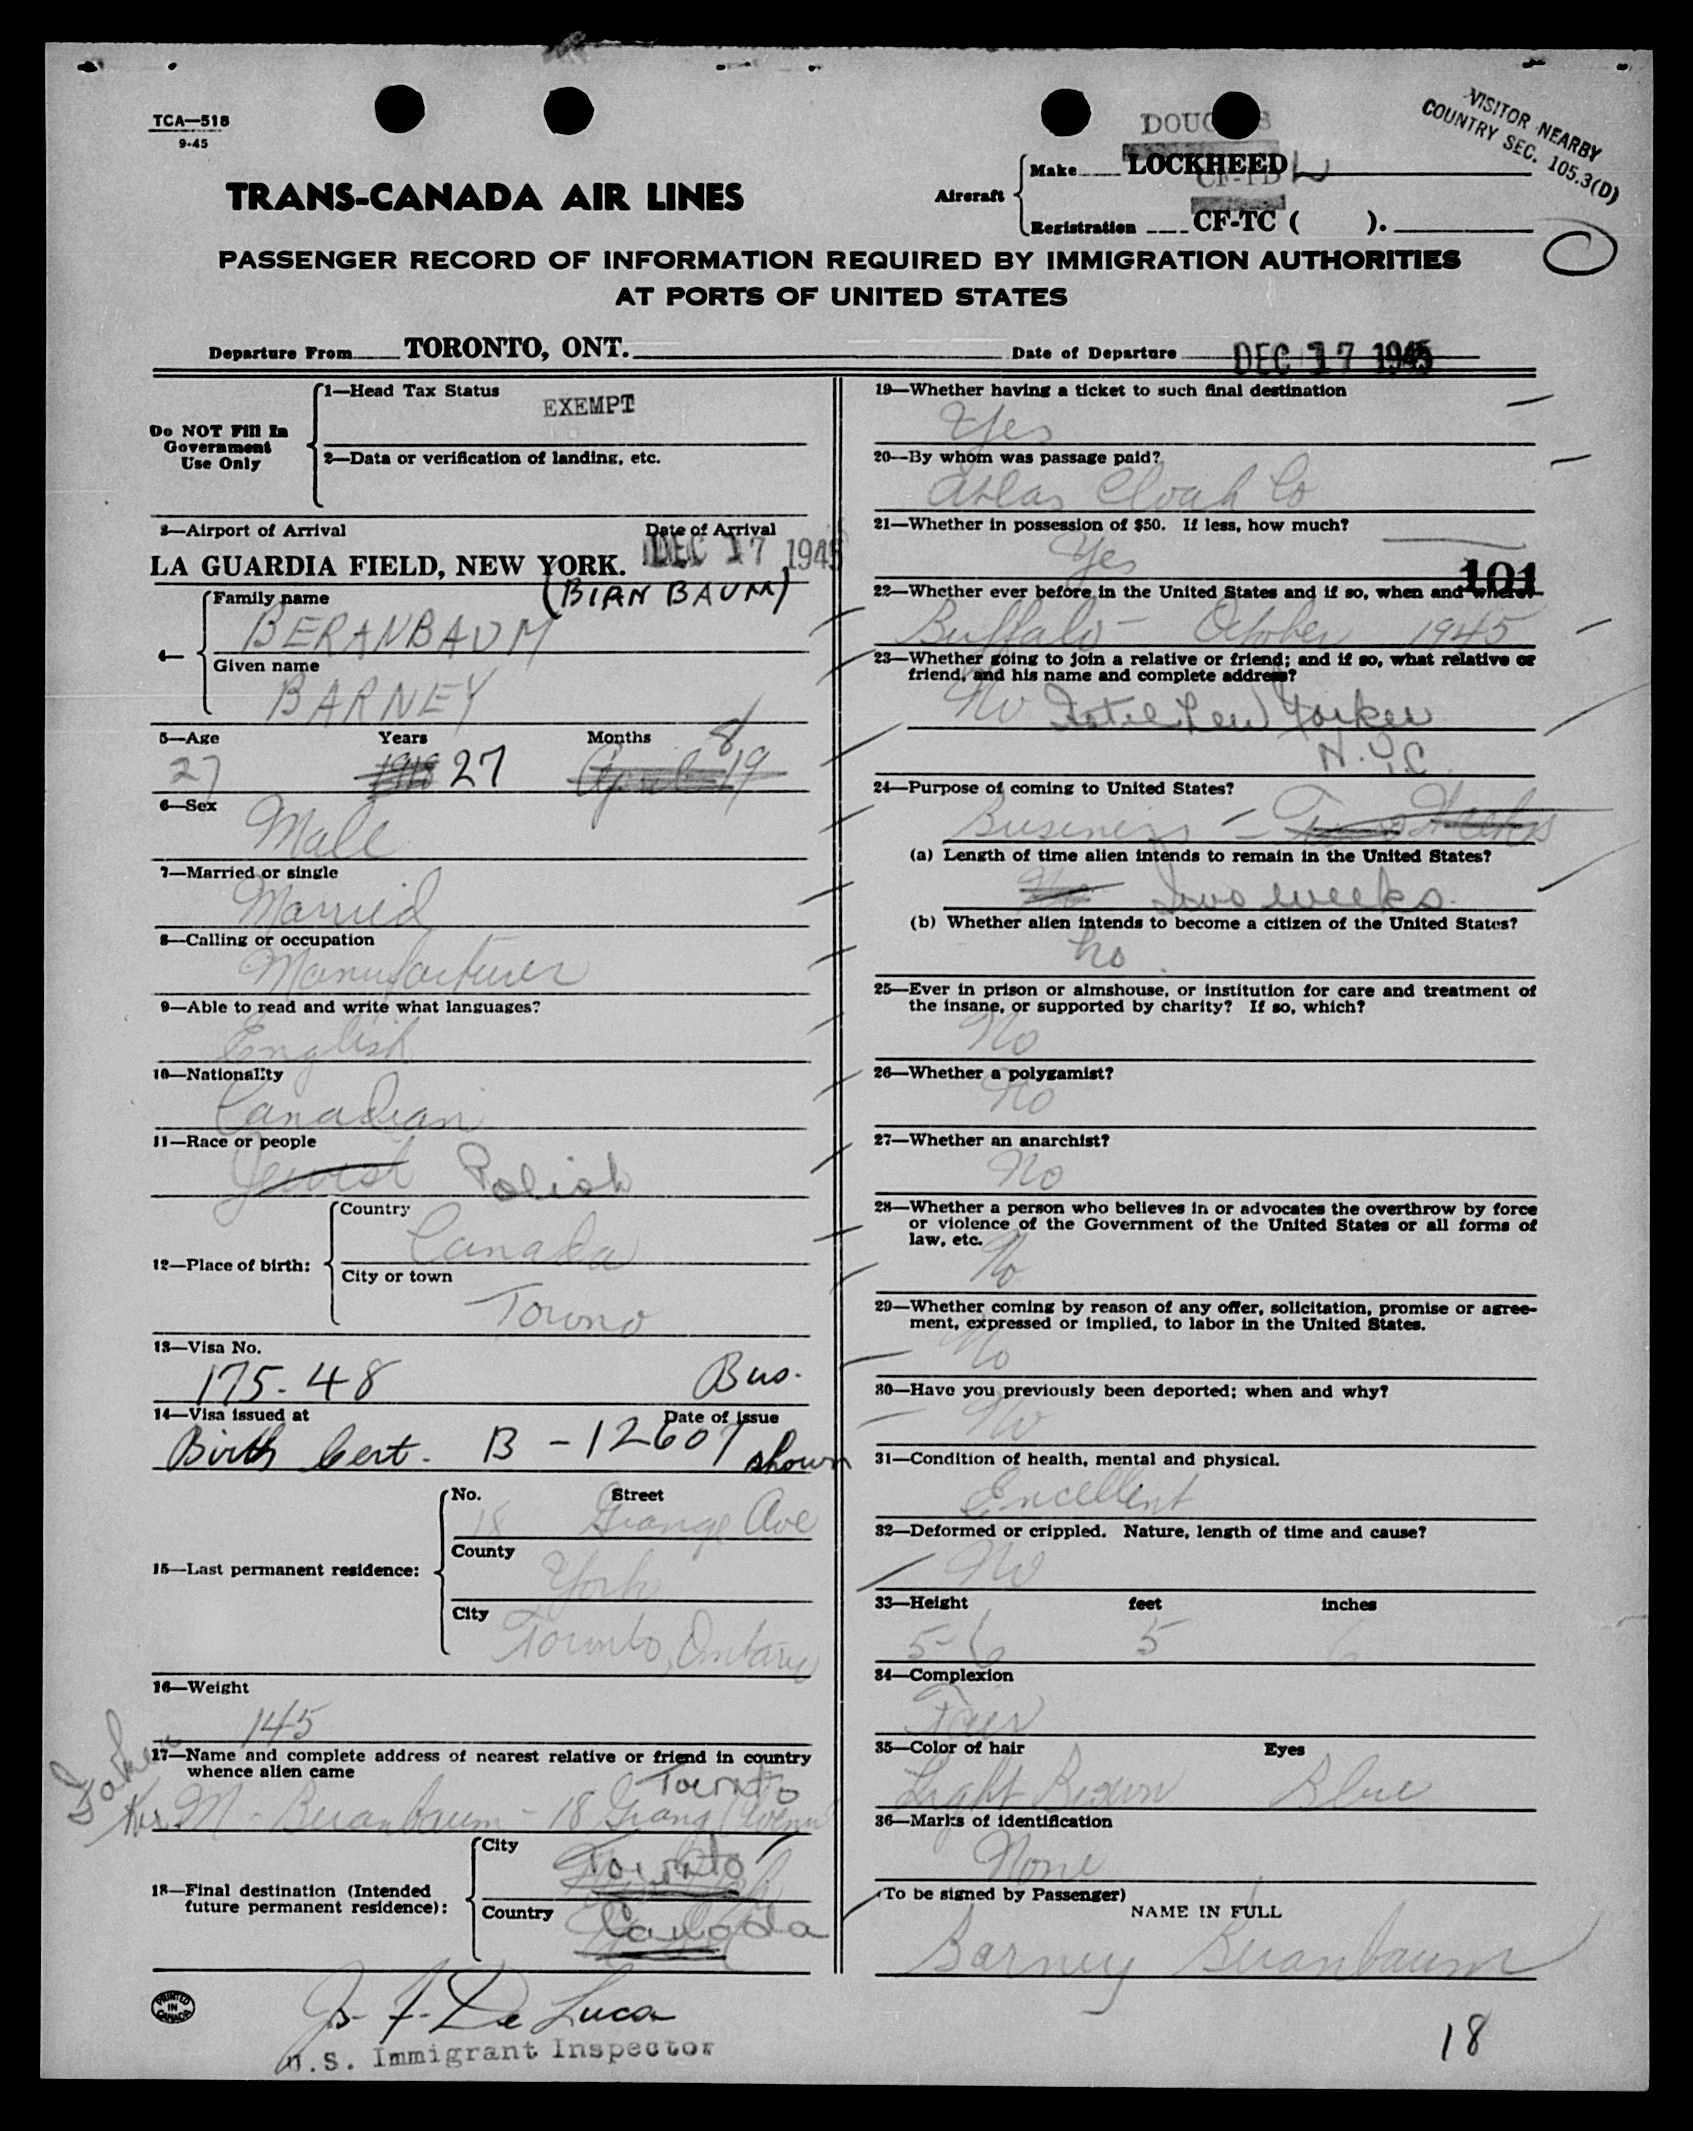 TCA—518
9-45
VISITOR NEARBY
COUNTRY SEC. 105.3(D)
DOUGLAS
Aircraft
Make LOCKHEED
CF-TD
Registration CF-TC ( ).
TRANS-CANADA AIR LINES
PASSENGER RECORD OF INFORMATION REQUIRED BY IMMIGRATION AUTHORITIES
AT PORTS OF UNITED STATES
Departure From TORONTO, ONT. Date of Departure DEC 17 1945
Do NOT Fill In
Government
Use Only
1—Head Tax Status
EXEMPT
2—Data or verification of landing, etc.
3—Airport of Arrival Date of Arrival
LA GUARDIA FIELD, NEW YORK. DEC 17 1945
(BIRNBAUM)
4—
Family name
BERANBAUM
Given name
BARNEY
5—Age Years Months
27 1918 27 April 19 8
6—Sex
Male
7—Married or single
Married
8—Calling or occupation
Manufacturer
9—Able to read and write what languages?
English
10—Nationality
Canadian
11—Race or people
Jewish Polish
12—Place of birth:
Country
Canada
City or town
Torono
13—Visa No.
175-48 Bus.
14—Visa issued at Date of issue
Birth Cert. B-12607 shown
15—Last permanent residence:
No. Street
18 Grange Ave
County
York
City
Toronto, Ontario
16—Weight
145
17—Name and complete address of nearest relative or friend in country
whence alien came
Father
Toronto
Mr M - Beranbaum - 18 Grange Avenue
18—Final destination (Intended
future permanent residence):
City
Toronto
Country
Canada
PRINTED
IN
CANADA
De Luca
U.S. Immigrant Inspector
19—Whether having a ticket to such final destination
Yes
20—By whom was passage paid?
Atlas Cloak Co
21—Whether in possession of $50. If less, how much?
Yes
101
22—Whether ever before in the United States and if so, when and where?
Buffalo - October 1945
23—Whether going to join a relative or friend; and if so, what relative or
friend, and his name and complete address?
No Hotel New Yorker
N.Y.C
24—Purpose of coming to United States?
Business - Two Weeks
(a) Length of time alien intends to remain in the United States?
No Two weeks.
(b) Whether alien intends to become a citizen of the United States?
no
25—Ever in prison or almshouse, or institution for care and treatment of
the insane, or supported by charity? If so, which?
No
26—Whether a polygamist?
No
27—Whether an anarchist?
No
28—Whether a person who believes in or advocates the overthrow by force
or violence of the Government of the United States or all forms of
law, etc.
No
29—Whether coming by reason of any offer, solicitation, promise or agree-
ment, expressed or implied, to labor in the United States.
No
30—Have you previously been deported; when and why?
No
31—Condition of health, mental and physical.
Excellent
32—Deformed or crippled. Nature, length of time and cause?
No
33—Height feet inches
5-6 5 6
34—Complexion
Fair
35—Color of hair Eyes
Light Brown Blue
36—Marks of identification
None
(To be signed by Passenger)
NAME IN FULL
Barney Beranbaum
18